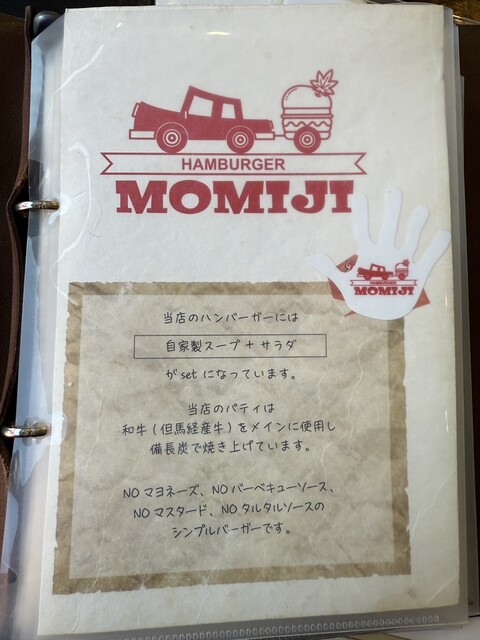 HAMBURGER
MOMIJI
HAMBURGER
MOMIJI
当店のハンバーガーには
自家製スープ + サラダ
が set になっています。
当店のパティは
和牛 ( 但馬経産牛 ) をメインに使用し
備長炭で焼き上げています。
NO マヨネーズ、NO バーベキューソース、
NO マスタード、NO タルタルソースの
シンプルバーガーです。